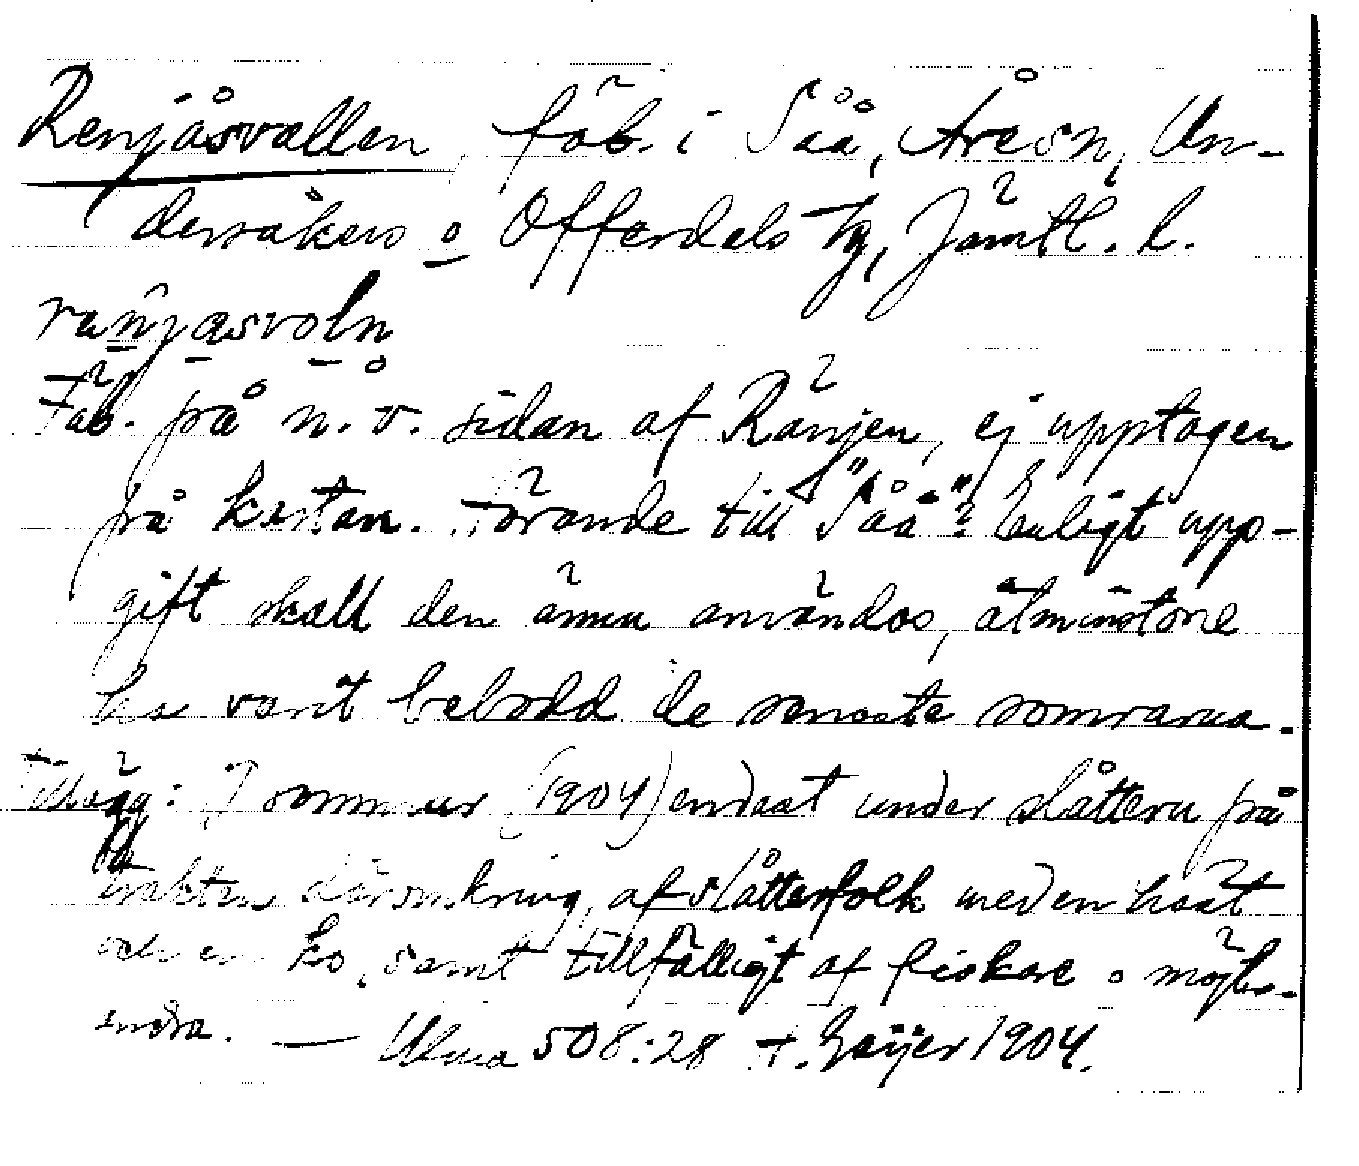 Renjåsvallen, fäb. i Såå, Åre sn, Un-
dersåkers o Offerdals tg, Jämtl. l.
ranjasvoln
Fäb. på n. v. sidan af Ränjen, ej upptagen
på kartan. Hörande till "Såå"? Enligt upp-
gift skall den ännu användas, åtminstone
ha varit bebodd de senaste somrarna.
Tillägg: I sommar (1904) endast under slåttern på
trakten däromkring, af slåtterfolk med en häst
och en ko, samt tillfälligt af fiskare o möjl.
andra. — Ulma 508:28 H. Geijer 1904.